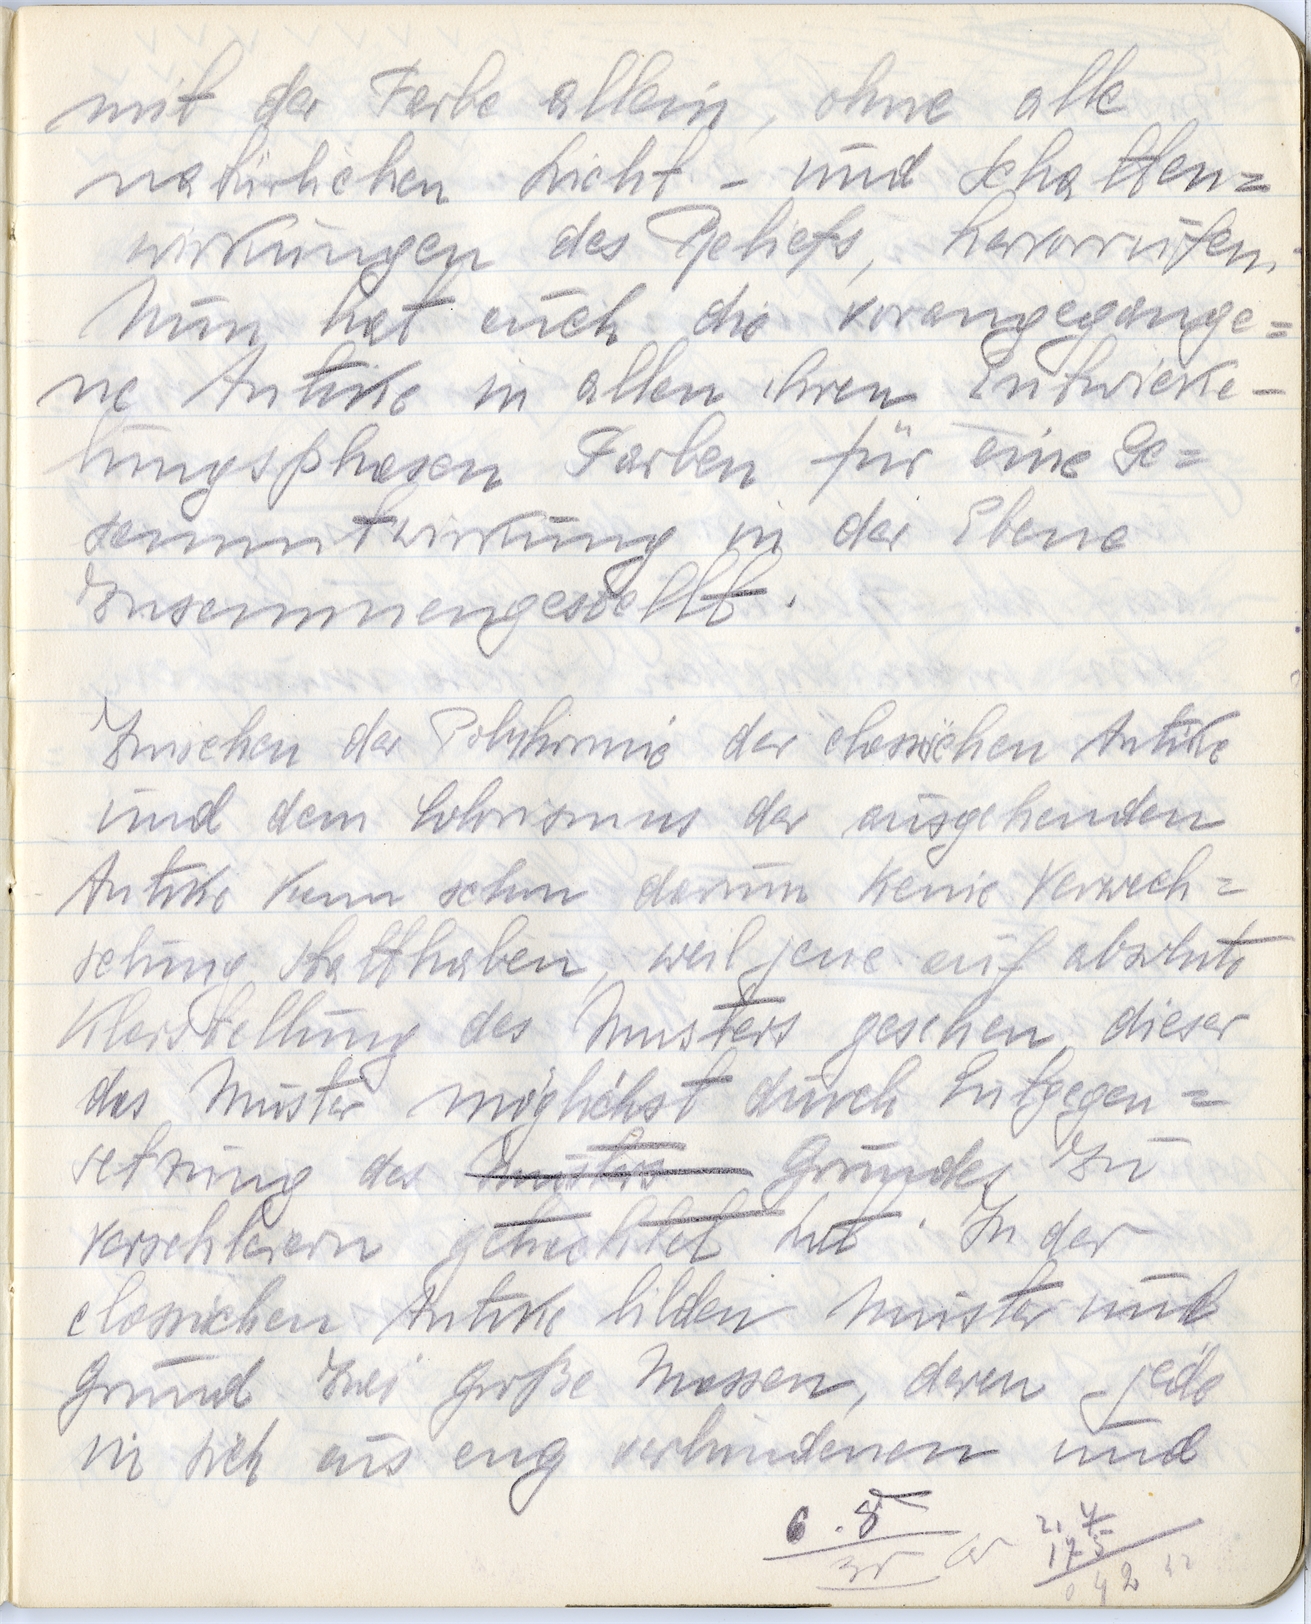 mit der Farbe allein, ohne alle
natürlichen Licht - und Schatten=
wirkungen des Reliefs, hervorrufen.
Nun hat auch die vorangegange=
ne Antike in allen ihren Entwicke-
lungsphasen Farben für eine Ge=
sammtwirkung in der Ebene
Zusammengestellt.
Zwischen der Polychromie der classischen Antike
und dem Colorismus der ausgehenden
Antike kann schon darum keine Verwech=
selung statthaben, weil jene auf absolute
Klarstellung des Musters gesehen, dieser
das Muster möglichst durch Entgegen=
setzung des Musters Grundes zu
verschleiern getrachtet hat. In der
classischen Antike bilden Muster und
Grund zwei große Massen, deren jede
in sich aus eng verbundenen und
6.8
35
175